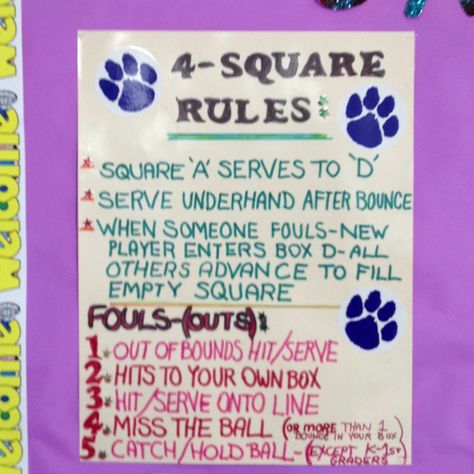 4-SQUARE
RULES:
SQUARE 'A' SERVES TO 'D'
SERVE UNDERHAND AFTER BOUNCE
WHEN SOMEONE FOULS-NEW
PLAYER ENTERS BOX D-ALL
OTHERS ADVANCE TO FILL
EMPTY SQUARE
FOULS-(OUTS):
1. OUT OF BOUNDS HIT/SERVE
2. HITS TO YOUR OWN BOX
3. HIT/SERVE ONTO LINE
4. MISS THE BALL (OR MORE THAN 1
BOUNCE IN YOUR BOX)
5. CATCH/HOLD BALL-(EXCEPT K-1st
GRADERS)
Welcome
Welcome
Welcome
Welcome